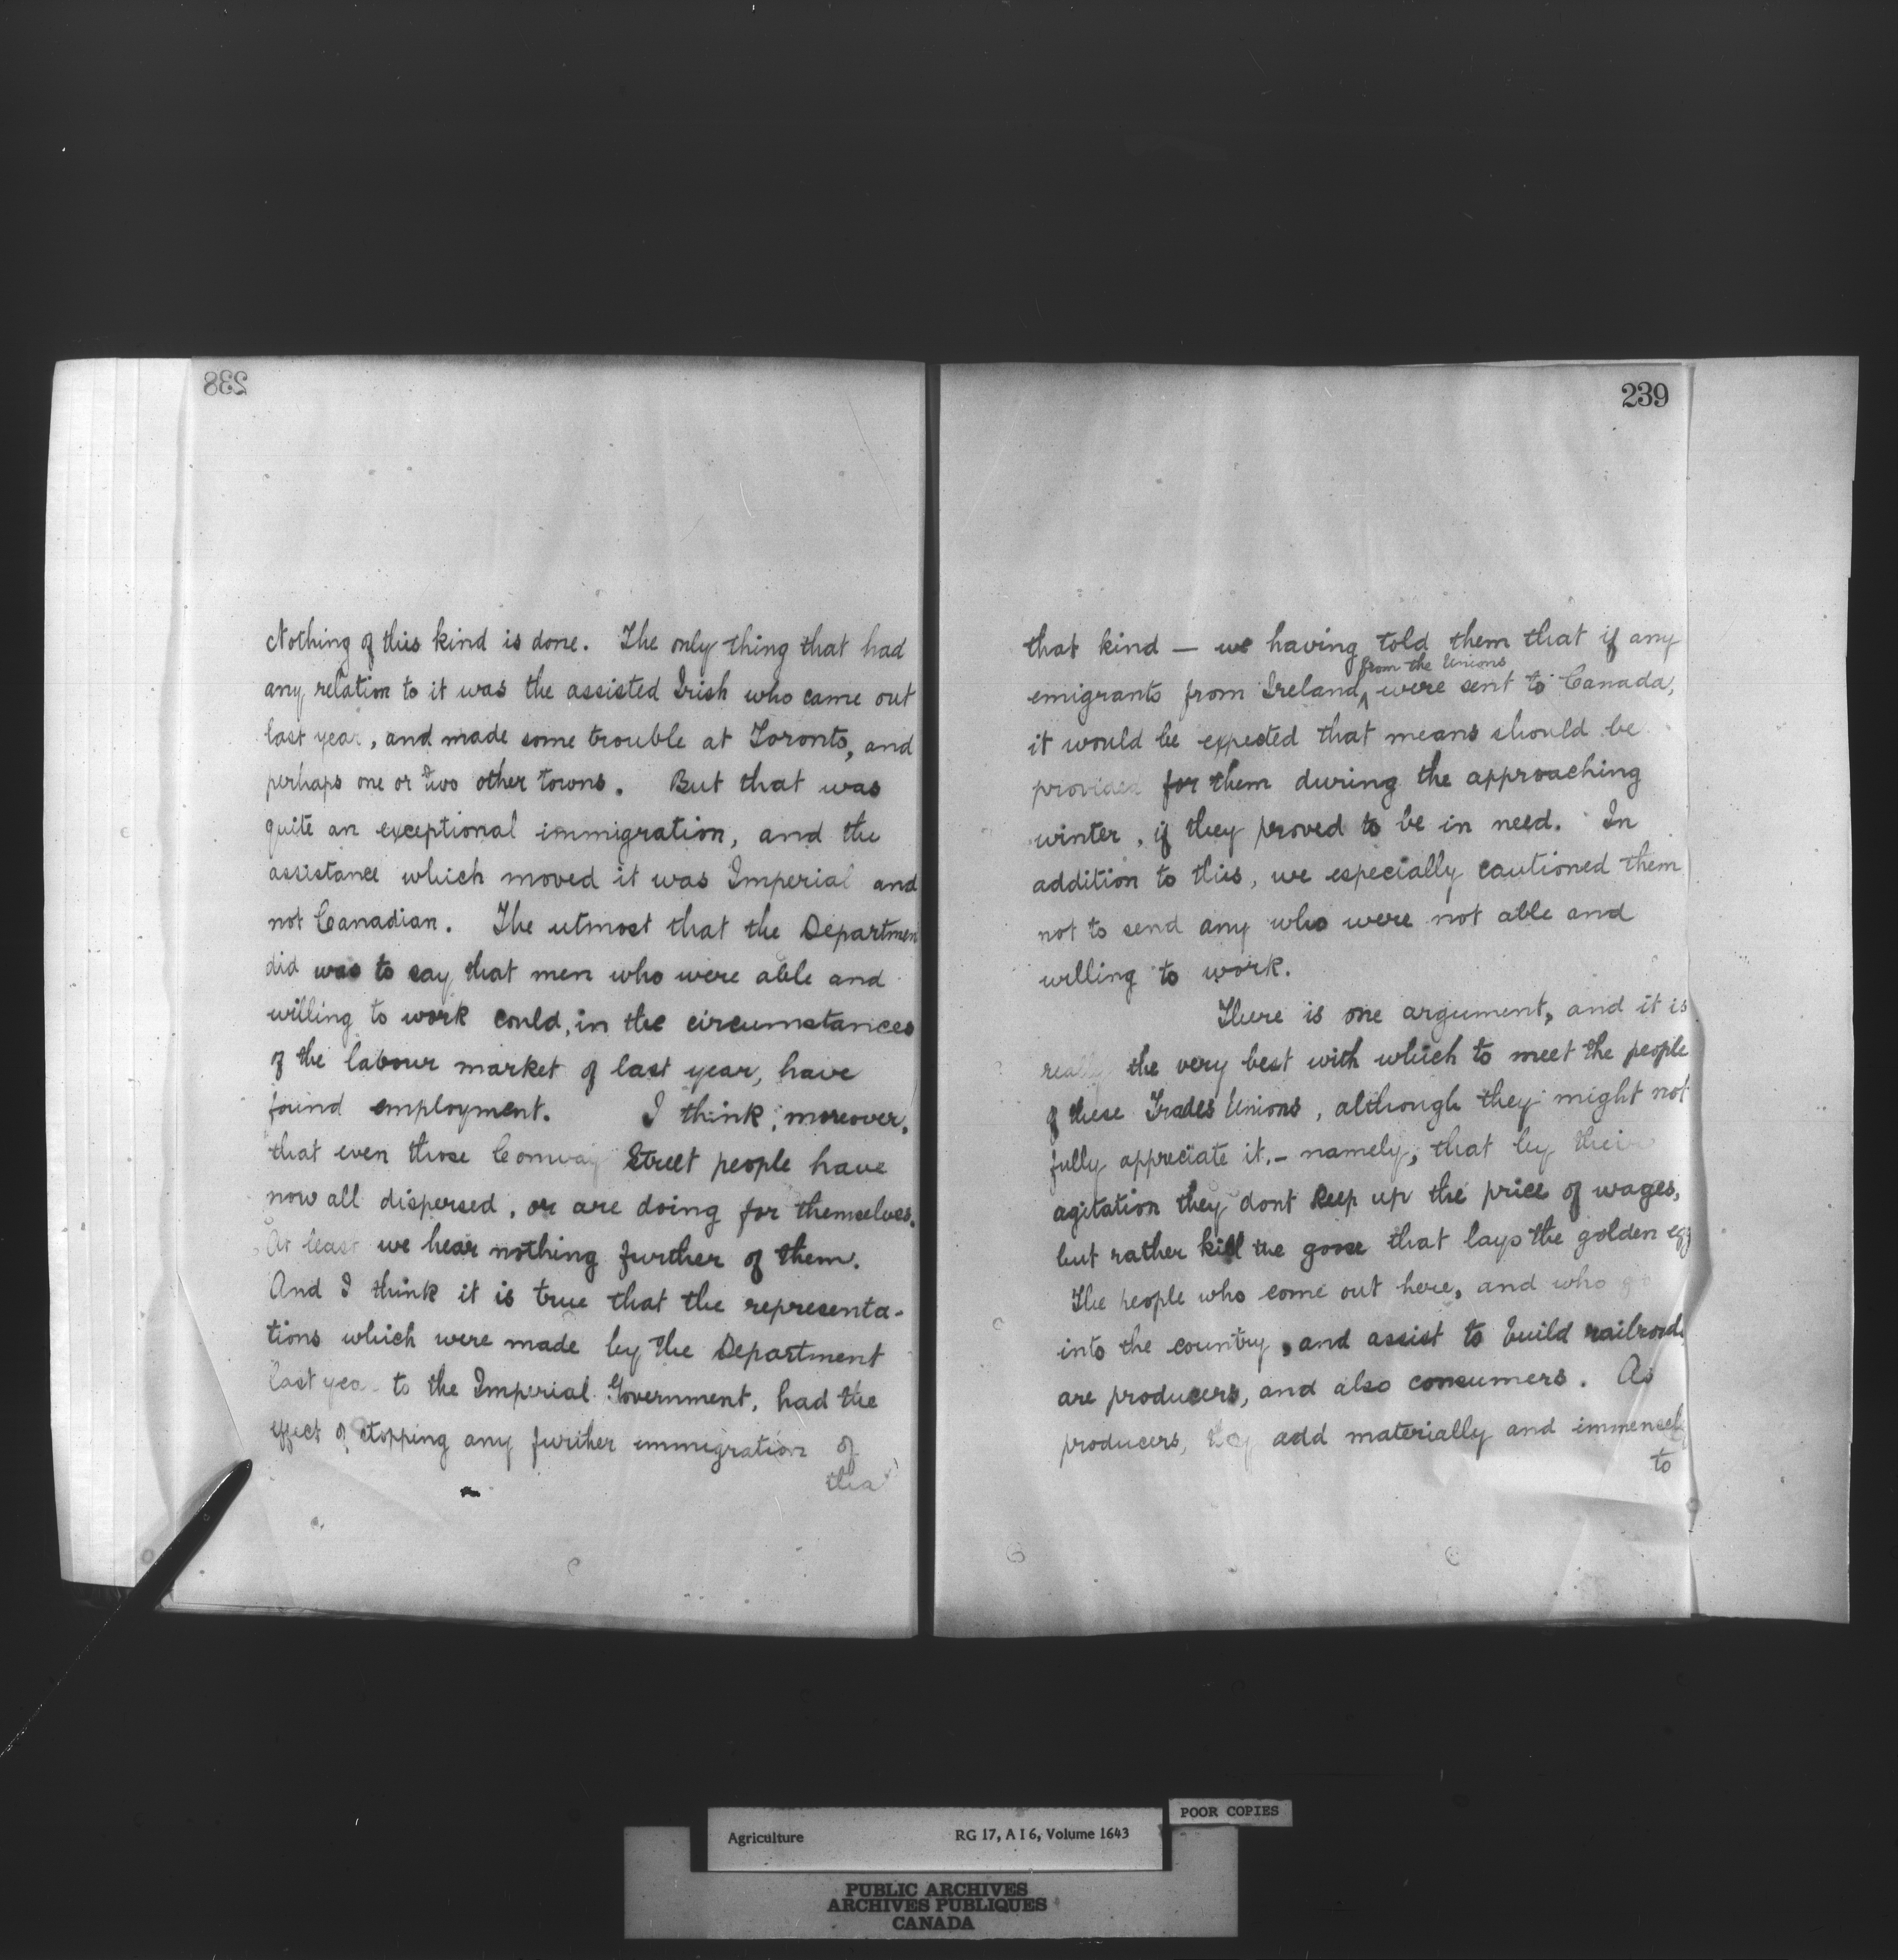 238
Nothing of this kind is done. The only thing that had
any relation to it was the assisted Irish who came out
last year, and made some trouble at Toronto, and
perhaps one or two other towns. But that was
quite an exceptional immigration, and the
assistance which moved it was Imperial and
not Canadian. The utmost that the Departmen
did was to say that men who were able and
willing to work could, in the circumstances
of the labour market of last year, have
found employment. I think, moreover,
that even those Conway Street people have
now all dispersed, or are doing for themselves.
At least we hear nothing further of them.
And I think it is true that the representa-
tions which were made by the Department
last yea to the Imperial Government, had the
effect of stopping any further immigration of
tha
239
that kind — we having told them that if any
from the Unions
emigrants from Ireland, were sent to Canada,
it would be expected that means should be
provided for them during the approaching
winter, if they proved to be in need. In
addition to this, we especially cautioned them
not to send any who were not able and
willing to work.
There is one argument, and it is
really the very best with which to meet the people
of these Trades Unions, although they might not
fully appreciate it, - namely, that by their
agitation they dont keep up the price of wages,
but rather kill the goose that lays the golden egg
The people who come out here, and who go
into the country, and assist to build railroads
are producers, and also consumers. As
producers, they add materially and immensely
to
POOR COPIES
Agriculture RG 17, A I 6, Volume 1643
PUBLIC ARCHIVES
ARCHIVES PUBLIQUES
CANADA